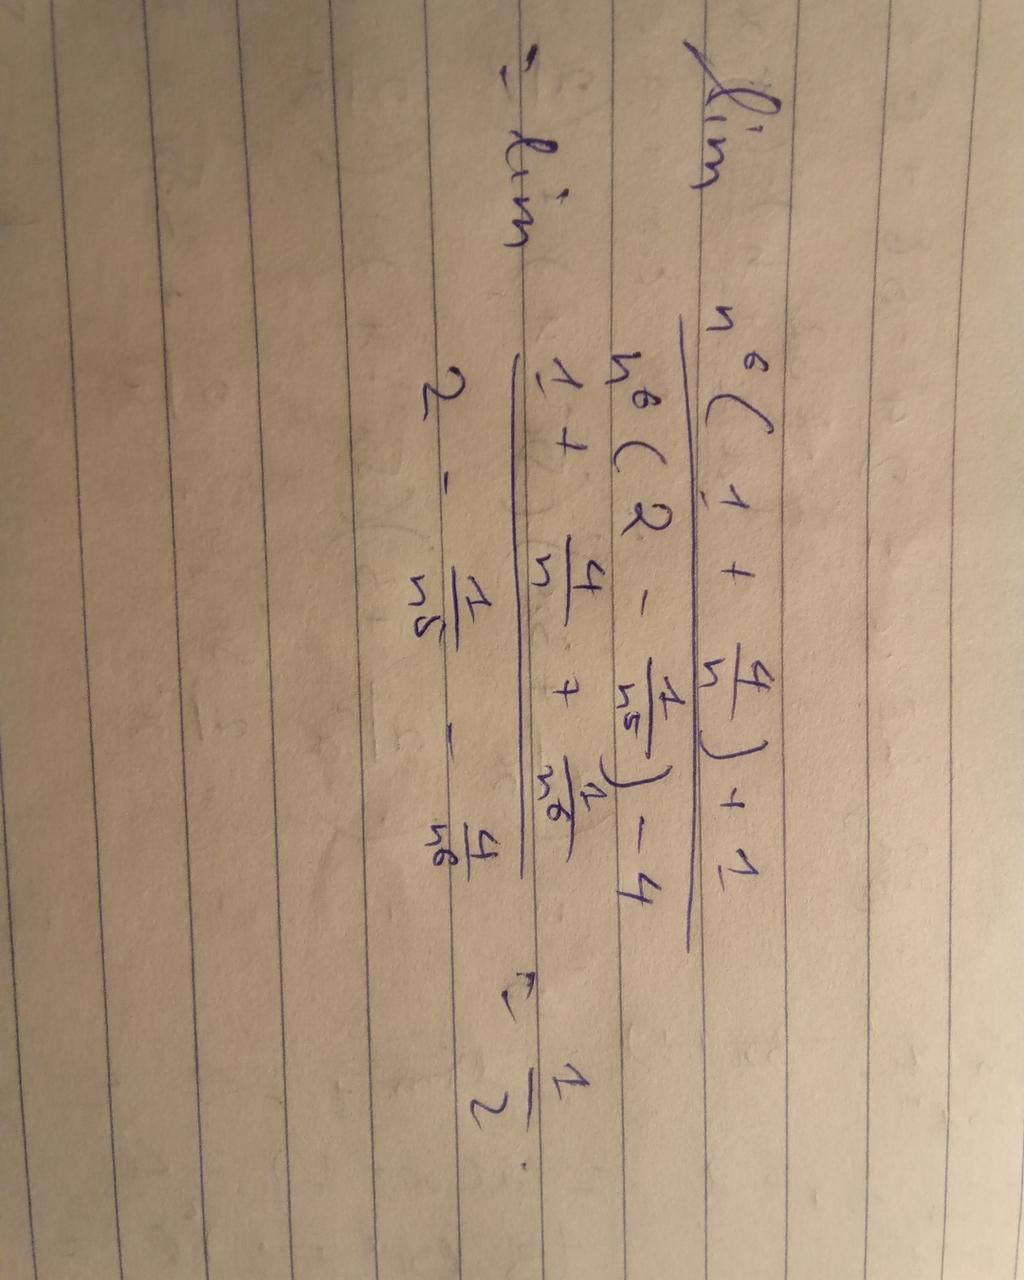 lim n⁶(1 + 4/n) + 1 / n⁶(2 - 1/n⁵) - 4
= lim 1 + 4/n + 1/n⁶ / 2 - 1/n⁵ - 4/n⁶ = 1/2.